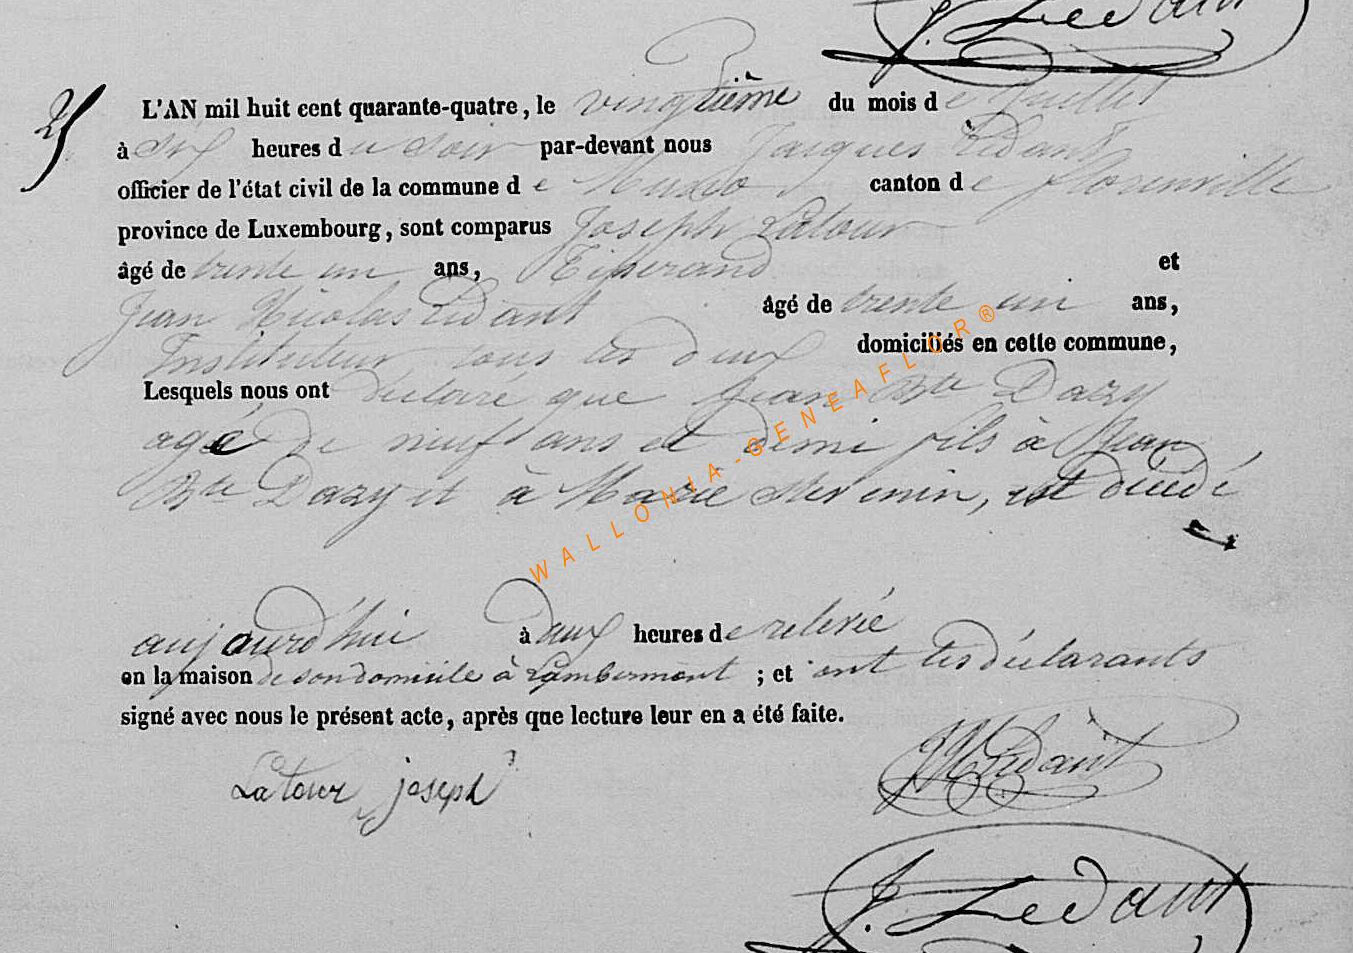 J. Ledant
25
L'AN mil huit cent quarante-quatre, le vingtième du mois de Juillet
à six heures du soir par-devant nous Jacques Ledant
officier de l'état civil de la commune de Muno canton de florenville
province de Luxembourg, sont comparus Joseph Latour
âgé de trente un ans, Tisserand et
Jean Nicolas Ledant âgé de trente un ans,
Instituteur tous les deux domiciliés en cette commune,
Lesquels nous ont déclaré que Jean Bte Dazy
agé de neuf ans et demi fils à Jean
Bte Dazy et à Marie, est décédé
aujourd'hui à deux heures de relevée
en la maison de son domicile à Lambermont ; et ont les déclarants
signé avec nous le présent acte, après que lecture leur en a été faite.
Latour joseph
JN Ledant
J. Ledant
WALLONIA-GENEAFLOR®